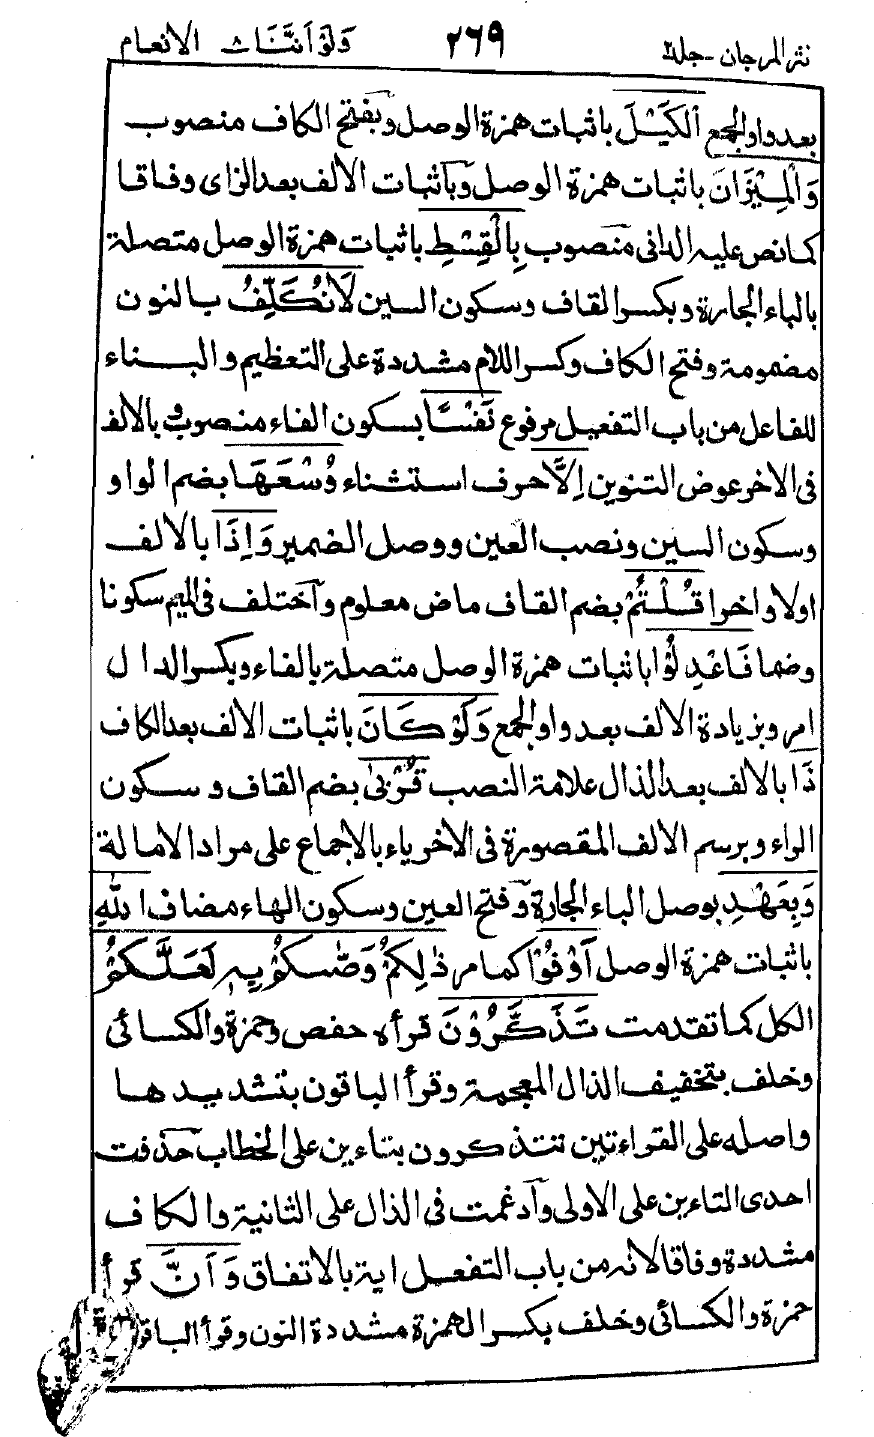 نثر المرجان - جلد ٢ ٢٦٩ وَلَوْ أَنَّنَا ٨ الانعام
بعد واو الجمع اَلْكَيْلَ باثبات همزة الوصل وبفتح الكاف منصوب
وَالْمِيْزَانَ باثبات همزة الوصل وباثبات الالف بعد الزاى وفاقا
كما نص عليه الدانى منصوب بِالْقِسْطِ باثبات همزة الوصل متصلة
بالباء الجارة وبكسر القاف وسكون السين لَانُكَلِّفُ بالنون
مضمومة وفتح الكاف وكسر اللام مشددة على التعظيم والبناء
للفاعل من باب التفعيل مرفوع نَفْسًا بسكون الفاء منصوب وبالالف
فى الاخر عوض التنوين اِلَّا حرف استثناء وُسْعَهَا بضم الواو
وسكون السين ونصب العين ووصل الضمير وَاِذَا بالالف
اولا واخرا قُلْتُمْ بضم القاف ماض معلوم واختلف فى الميم سكونا
وضما فَاعْدِلُوْا باثبات همزة الوصل متصلة بالفاء وبكسر الدال
امر وبزيادة الالف بعد واو الجمع وَلَوْ كَانَ باثبات الالف بعد الكاف
ذَا بالالف بعد الذال علامة النصب قُرْبٰى بضم القاف وسكون
الراء وبرسم الالف المقصورة فى الاخر ياء بالاجماع على مراد الامالة
وَبِعَهْدِ بوصل الباء الجارة وفتح العين وسكون الهاء مضاف اللّٰهِ
باثبات همزة الوصل اَوْفُوْا كما مر ذٰلِكُمْ وَصّٰىكُمْ بِهٖ لَعَلَّكُمْ
الكل كما تقدمت تَذَكَّرُوْنَ قرأه حفص وحمزة والكسائى
وخلف بتخفيف الذال المعجمة وقرأ الباقون بتشديدها
واصله على القراءتين تتذكرون بتاءين على الخطاب حذفت
احدى التاءين على الاولى وادغمت فى الذال على الثانية والكاف
مشددة وفاقا لانه من باب التفعل اية بالاتفاق وَاَنَّ قرأ
حمزة والكسائى وخلف بكسر الهمزة مشددة النون وقرأ